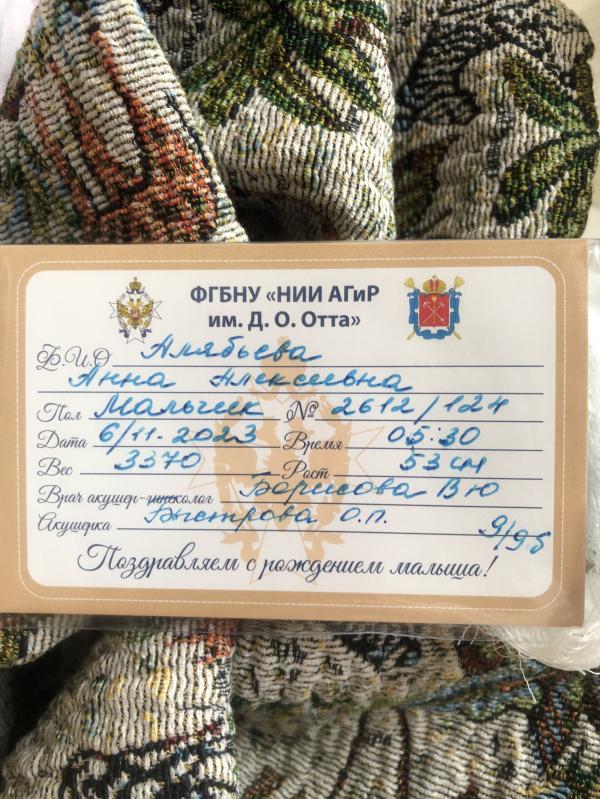 ФГБНУ «НИИ АГиР
им. Д. О. Отта»
Ф.И.О Алябьева
Анна Алексеевна
Пол Мальчик № 2612/124
Дата 6/11-2023 Время 05:30
Вес 3370 Рост 53 см
Врач акушер-гинеколог Борисова В Ю
Акушерка Быстрова О.П.
9/9б
Поздравляем с рождением малыша!